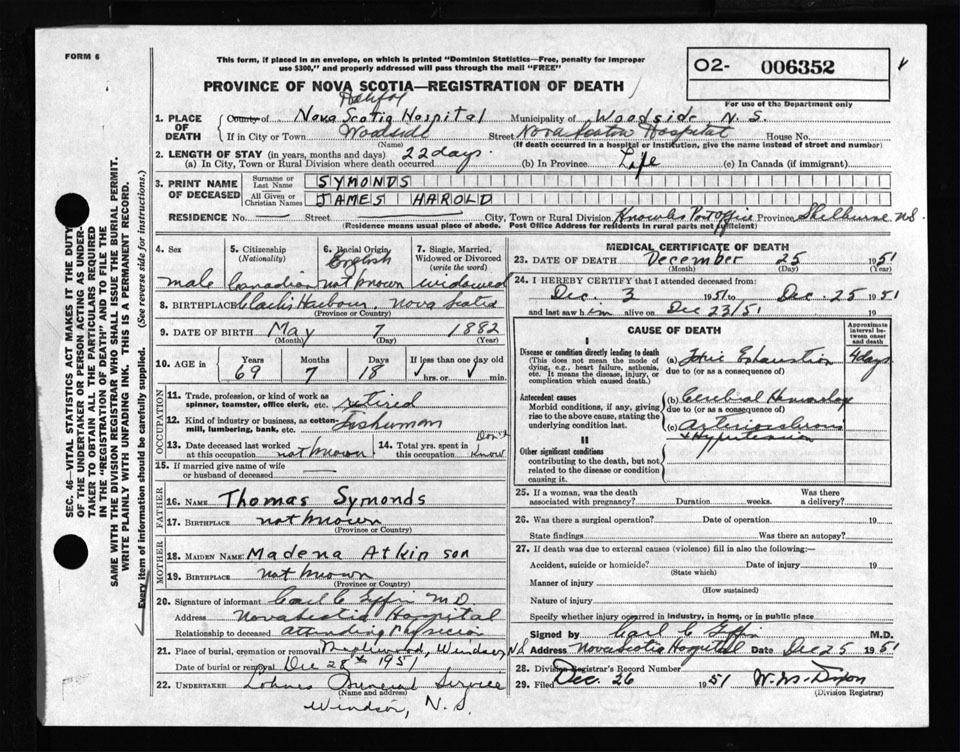 FORM 6
This form, if placed in an envelope, on which is printed "Dominion Statistics—Free, penalty for improper
use $300," and properly addressed will pass through the mail "FREE"
O2- 006352
PROVINCE OF NOVA SCOTIA—REGISTRATION OF DEATH
For use of the Department only
Halifax
1. PLACE OF DEATH
County of Nova Scotia Hospital Municipality of Woodside N. S.
If in City or Town Woodside Street Nova Scotia Hospital House No.
(Name) (If death occurred in a hospital or institution, give the name instead of street and number)
2. LENGTH OF STAY (in years, months and days)
(a) In City, Town or Rural Division where death occurred 22 days. (b) In Province Life (c) In Canada (if immigrant)
3. PRINT NAME OF DECEASED
Surname or Last Name SYMONDS
All Given or Christian Names JAMES HAROLD
RESIDENCE No. Street City, Town or Rural Division Knowles Post Office Province Shelburne N.S.
(Residence means usual place of abode. Post Office Address for residents in rural parts not sufficient)
4. Sex male
5. Citizenship (Nationality) Canadian
6. Racial Origin English not known
7. Single, Married, Widowed or Divorced (write the word) widowed
8. BIRTHPLACE Clark's Harbour, Nova Scotia
(Province or Country)
9. DATE OF BIRTH May 7 1882
(Month) (Day) (Year)
10. AGE in Years 69 Months 7 Days 18 If less than one day old hrs. or min.
OCCUPATION
11. Trade, profession, or kind of work as spinner, teamster, office clerk, etc. retired
12. Kind of industry or business, as cotton-mill, lumbering, bank, etc. Fisherman
13. Date deceased last worked at this occupation not known
14. Total yrs. spent in this occupation Don't Know
15. If married give name of wife or husband of deceased
FATHER
16. NAME Thomas Symonds
17. BIRTHPLACE not known
(Province or Country)
MOTHER
18. MAIDEN NAME Madena Atkinson
19. BIRTHPLACE not known
(Province or Country)
20. Signature of informant Carl C M.D.
Address Nova Scotia Hospital
Relationship to deceased attending Physician
21. Place of burial, cremation or removal Maplewood, Windsor, N.S
Date of burial or removal Dec 28th 1951
22. UNDERTAKER Lohnes Funeral Service
(Name and address)
Windsor, N. S.
MEDICAL CERTIFICATE OF DEATH
23. DATE OF DEATH December 25 1951
(Month) (Day) (Year)
24. I HEREBY CERTIFY that I attended deceased from:
Dec. 3 1951 to Dec. 25 1951
and last saw him alive on Dec 23/51
CAUSE OF DEATH
Approximate interval between onset and death
I
Disease or condition directly leading to death
(This does not mean the mode of dying, e.g., heart failure, asthenia, etc. It means the disease, injury, or complication which caused death.)
(a) Toxic Exhaustion 4 days
due to (or as a consequence of)
Antecedent causes
Morbid conditions, if any, giving rise to the above cause, stating the underlying condition last.
(b) Cerebral Hemorrhage
due to (or as a consequence of)
(c) Arteriosclerosis
+ Hypertension
II
Other significant conditions
contributing to the death, but not related to the disease or condition causing it.
25. If a woman, was the death associated with pregnancy? Duration weeks. Was there a delivery?
26. Was there a surgical operation? Date of operation 19
State findings Was there an autopsy?
27. If death was due to external causes (violence) fill in also the following:—
Accident, suicide or homicide? Date of injury 19
(State which)
Manner of injury
(How sustained)
Nature of injury
Specify whether injury occurred in industry, in home, or in public place
Signed by Carl C M.D.
Address Nova Scotia Hospital Dec 25 1951
28. Division Registrar's Record Number
29. Filed Dec. 26 1951 W. M. Dixon
(Division Registrar)
SEC. 46—VITAL STATISTICS ACT MAKES IT THE DUTY
OF THE UNDERTAKER OR PERSON ACTING AS UNDER-
TAKER TO OBTAIN ALL THE PARTICULARS REQUIRED
IN THE "REGISTRATION OF DEATH" AND TO FILE THE
SAME WITH THE DIVISION REGISTRAR WHO SHALL ISSUE THE BURIAL PERMIT.
WRITE PLAINLY WITH UNFADING INK. THIS IS A PERMANENT RECORD.
Every item of information should be carefully supplied. (See reverse side for instructions.)